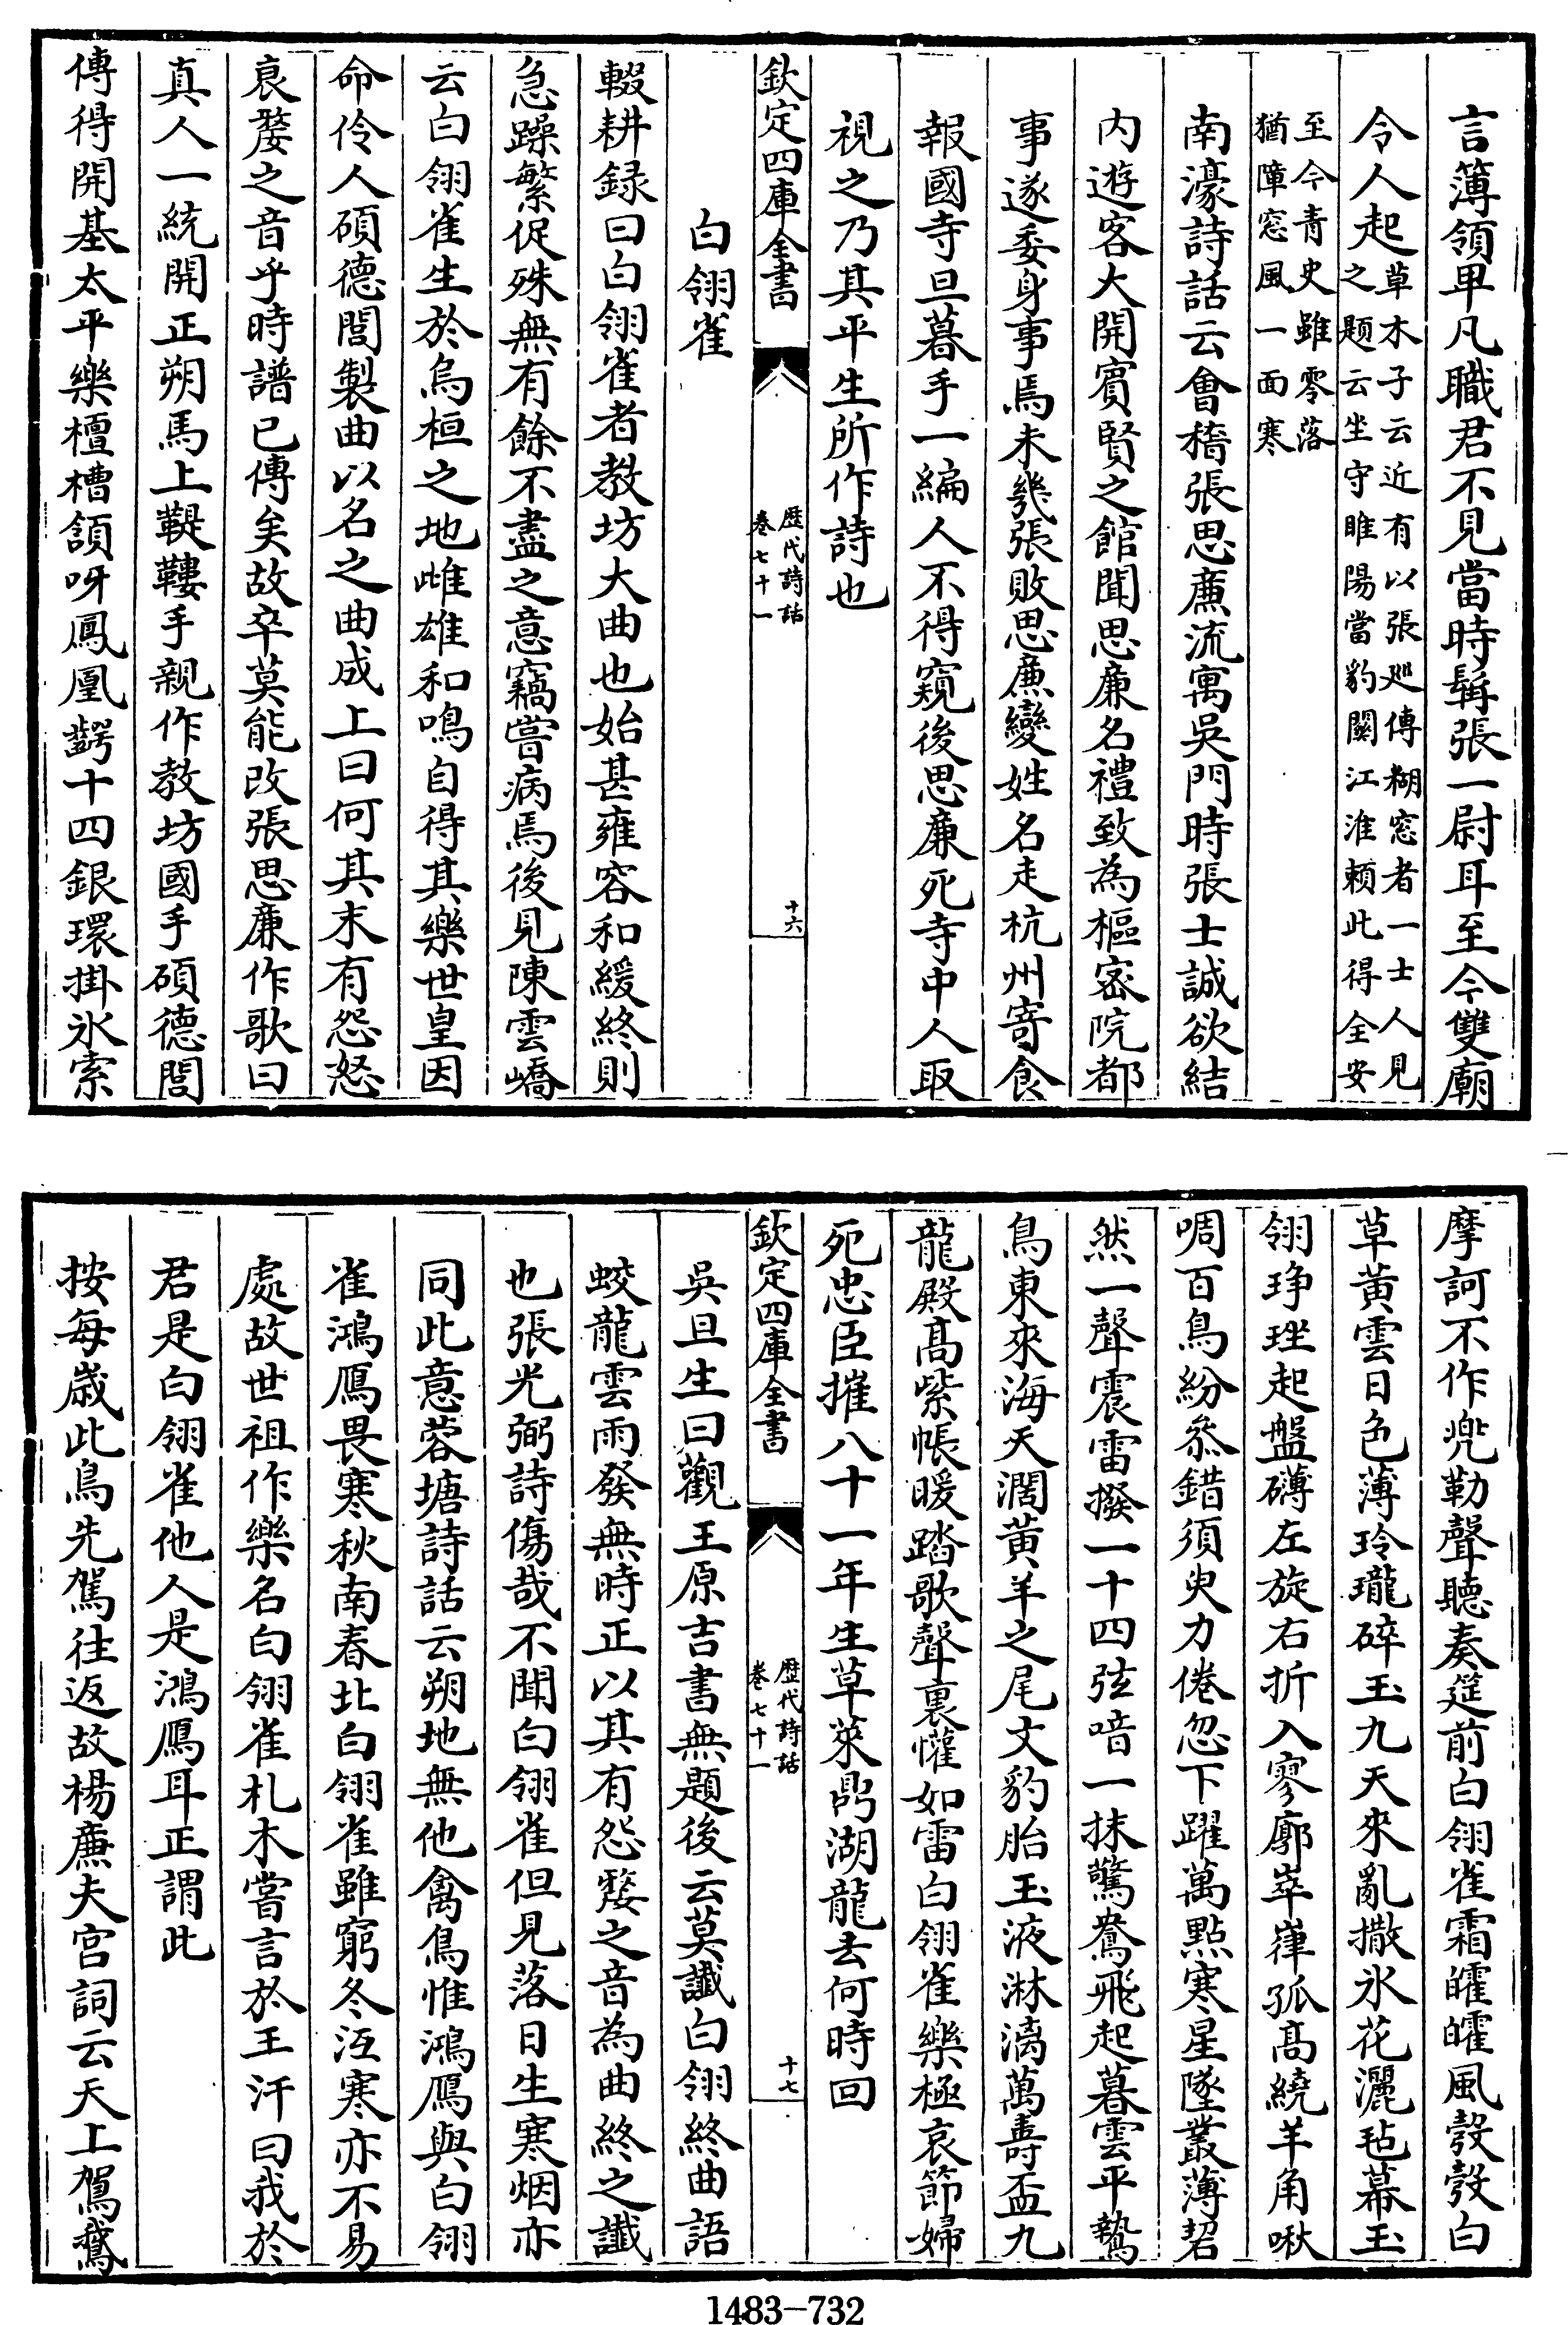 言簿領卑凡職君不見當時髯張一尉耳至今雙廟
令人起草木子云近有以張廵傳糊窓者一士人見
之題云坐守睢陽當豹關江淮賴此得全安
至今青史雖零落
猶障窓風一面寒
南濠詩話云會稽張思廉流寓吳門時張士誠欲結
内遊客大開賓賢之館聞思廉名禮致為樞宻院都
事遂委身事焉未幾張敗思廉變姓名走杭州寄食
報國寺旦暮手一編人不得窺後思廉死寺中人取
視之乃其平生所作詩也
欽定四庫全書
歴代詩話
卷七十一
十六
白翎雀
輟耕録曰白翎雀者教坊大曲也始甚雍容和緩終則
急躁繁促殊無有餘不盡之意竊嘗病焉後見陳雲嶠
云白翎雀生於烏桓之地雌雄和鳴自得其樂世皇因
命伶人碩德閭製曲以名之曲成上曰何其末有怨怒
哀嫠之音乎時譜已傳矣故卒莫能改張思廉作歌曰
真人一統開正朔馬上鞮鞻手親作教坊國手碩德閭
傳得開基太平樂檀槽頷呀鳳凰齶十四銀環掛氷索
摩訶不作兠勒聲聽奏筵前白翎雀霜皬皬風瑴瑴白
草黄雲日色薄玲瓏碎玉九天來亂撒氷花灑毡幕玉
翎琤珵起盤礡左旋右折入寥廓崒嵂孤高繞羊角啾
啁百鳥紛叅錯須臾力倦忽下躍萬點寒星墜叢薄䂮
然一聲震雷撥一十四弦喑一抹驚鴦飛起暮雲平鷙
鳥東來海天濶黄羊之尾文豹胎玉液淋漓萬夀盃九
龍殿髙紫帳暖踏歌聲裏懽如雷白翎雀樂極哀節婦
死忠臣摧八十一年生草萊鼎湖龍去何時回
欽定四庫全書
歴代詩話
卷七十一
十七
吳旦生曰觀王原吉書無題後云莫讖白翎終曲語
蛟龍雲雨發無時正以其有怨嫠之音為曲終之讖
也張光弼詩傷哉不聞白翎雀但見落日生寒烟亦
同此意蓉塘詩話云朔地無他禽鳥惟鴻鴈與白翎
雀鴻鴈畏寒秋南春北白翎雀雖窮冬沍寒亦不易
處故世祖作樂名白翎雀札木嘗言於王汗曰我於
君是白翎雀他人是鴻鴈耳正謂此
按每歳此鳥先駕往返故楊亷夫宫詞云天上駕鵞
1483-732